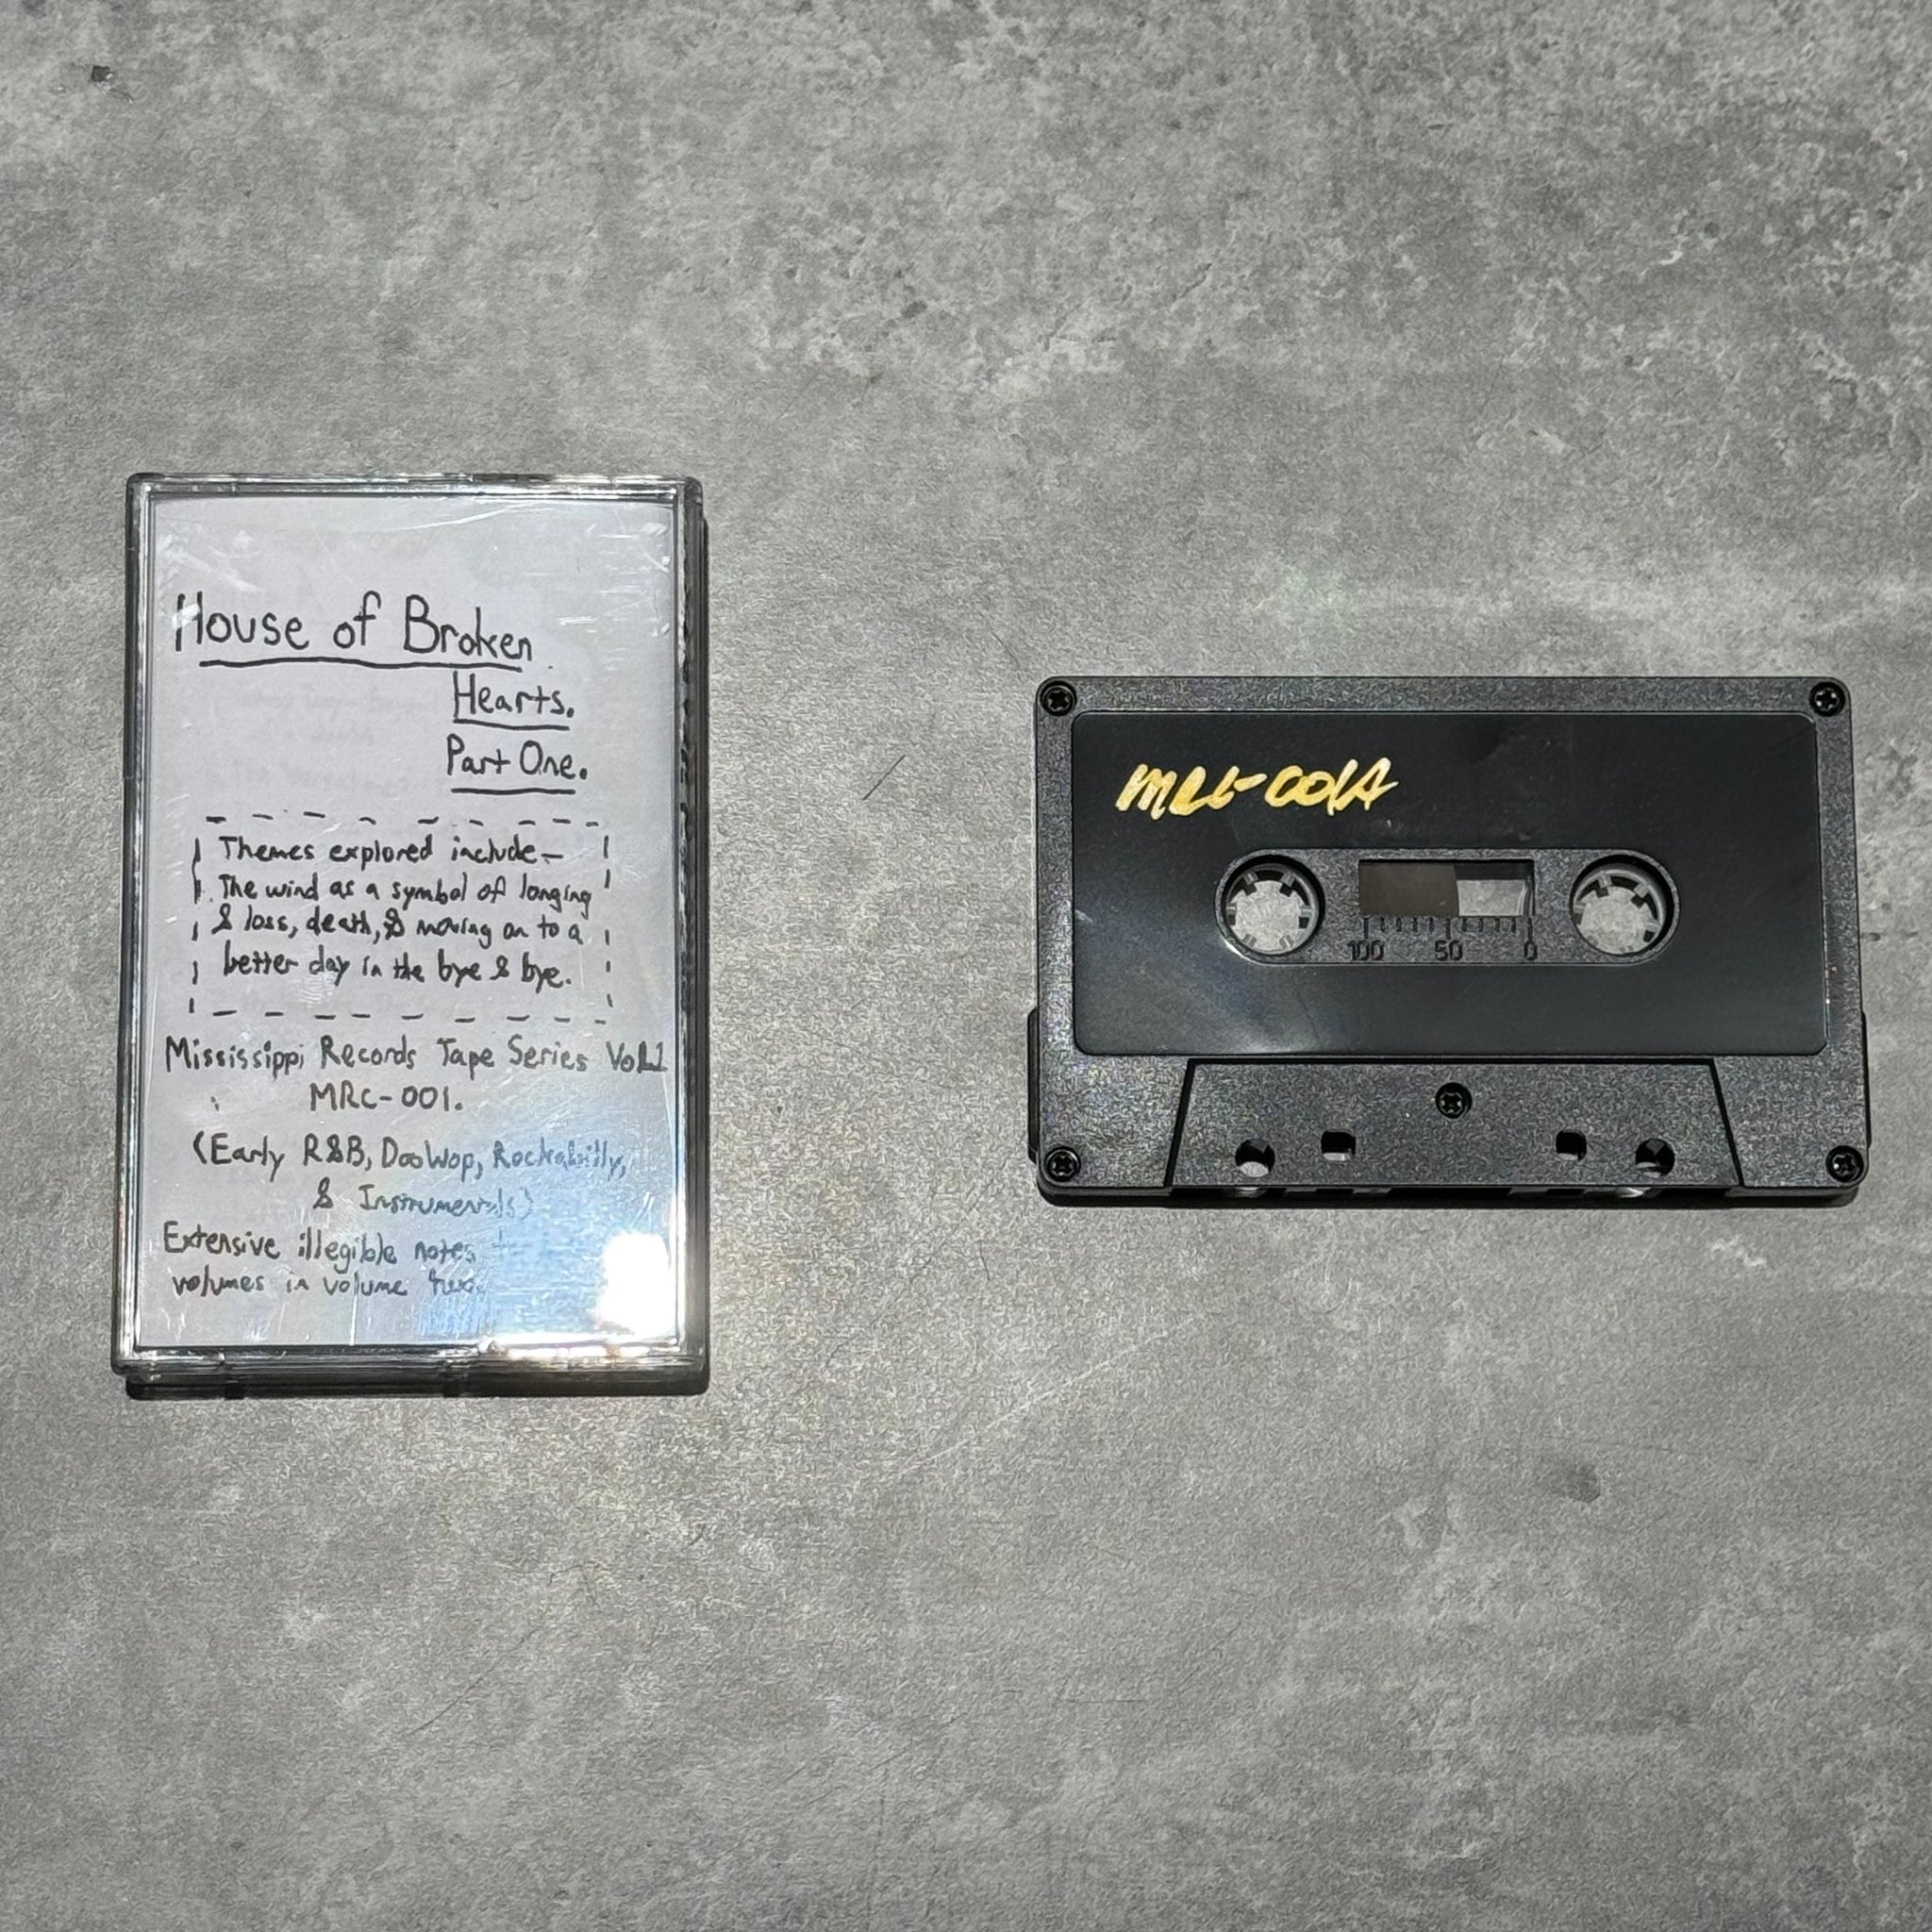 House of Broken
Hearts.
Part One.
Themes explored include-
The wind as a symbol of longing
& loss, death, & moving on to a
better day in the bye & bye.
Mississippi Records Tape Series Vol.1
MRC-001.
(Early R&B, DooWop, Rockabilly,
& Instrumentals)
Extensive illegible notes
volumes in volume two.
MRC-001A
100 50 0